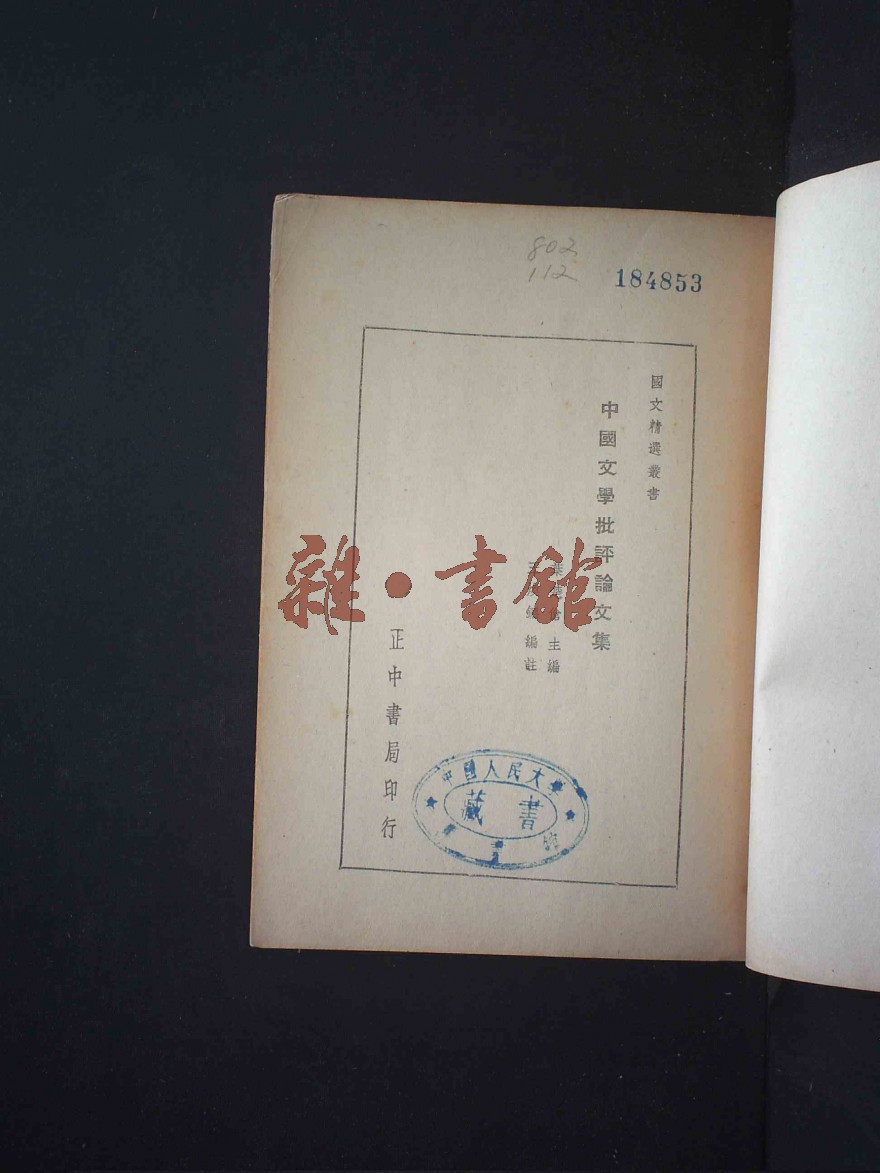 802
112
184853
國文精選叢書
中國文學批評論文集
主編
編註
正中書局印行
中國人民大學
藏書
雜·書館